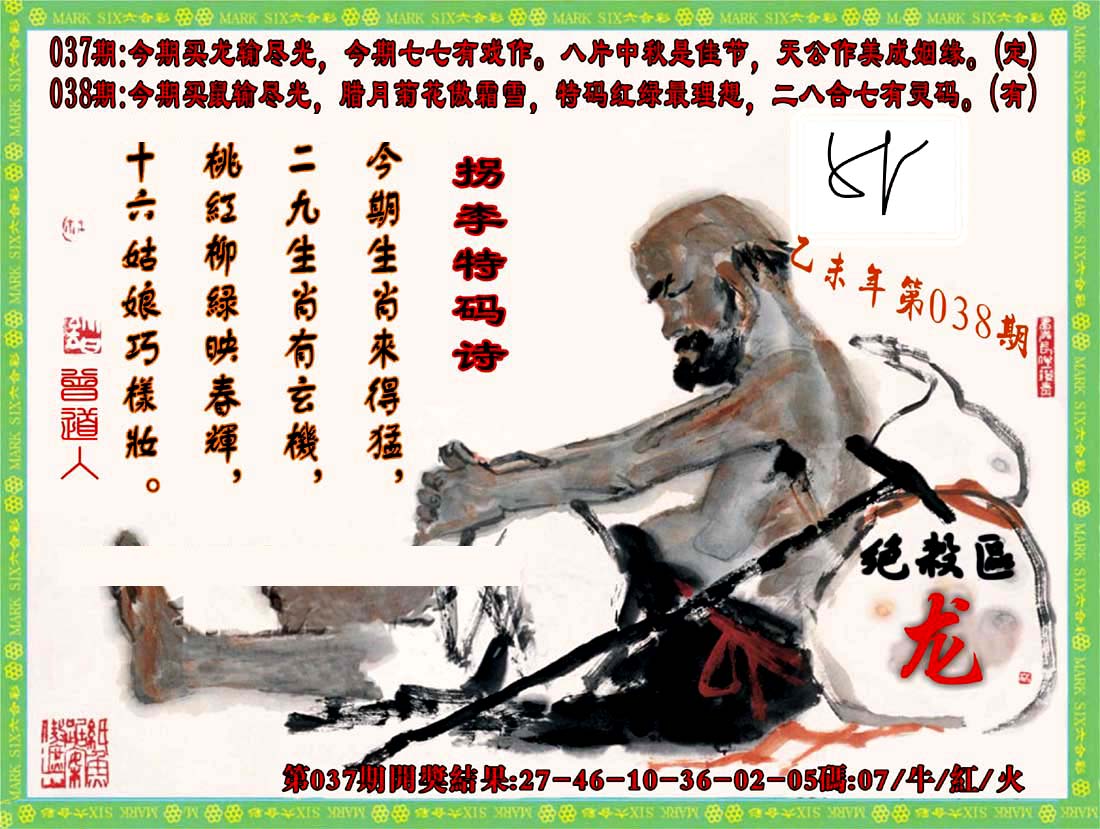 037期:今期买龙输尽光，今期七七有戏作。八片中秋是佳节，天公作美成姻缘。(定)
038期:今期买鼠输尽光，腊月菊花傲霜雪，特码红绿最理想，二八合七有灵码。(有)
拐李特码诗
今期生肖來得猛，
二九生肖有玄機，
桃紅柳綠映春輝，
十六姑娘巧樣妝。
乙未年第038期
曾道人
绝殺區
龙
第037期開獎結果:27-46-10-36-02-05碼:07/牛/紅/火
MARK SIX六合彩